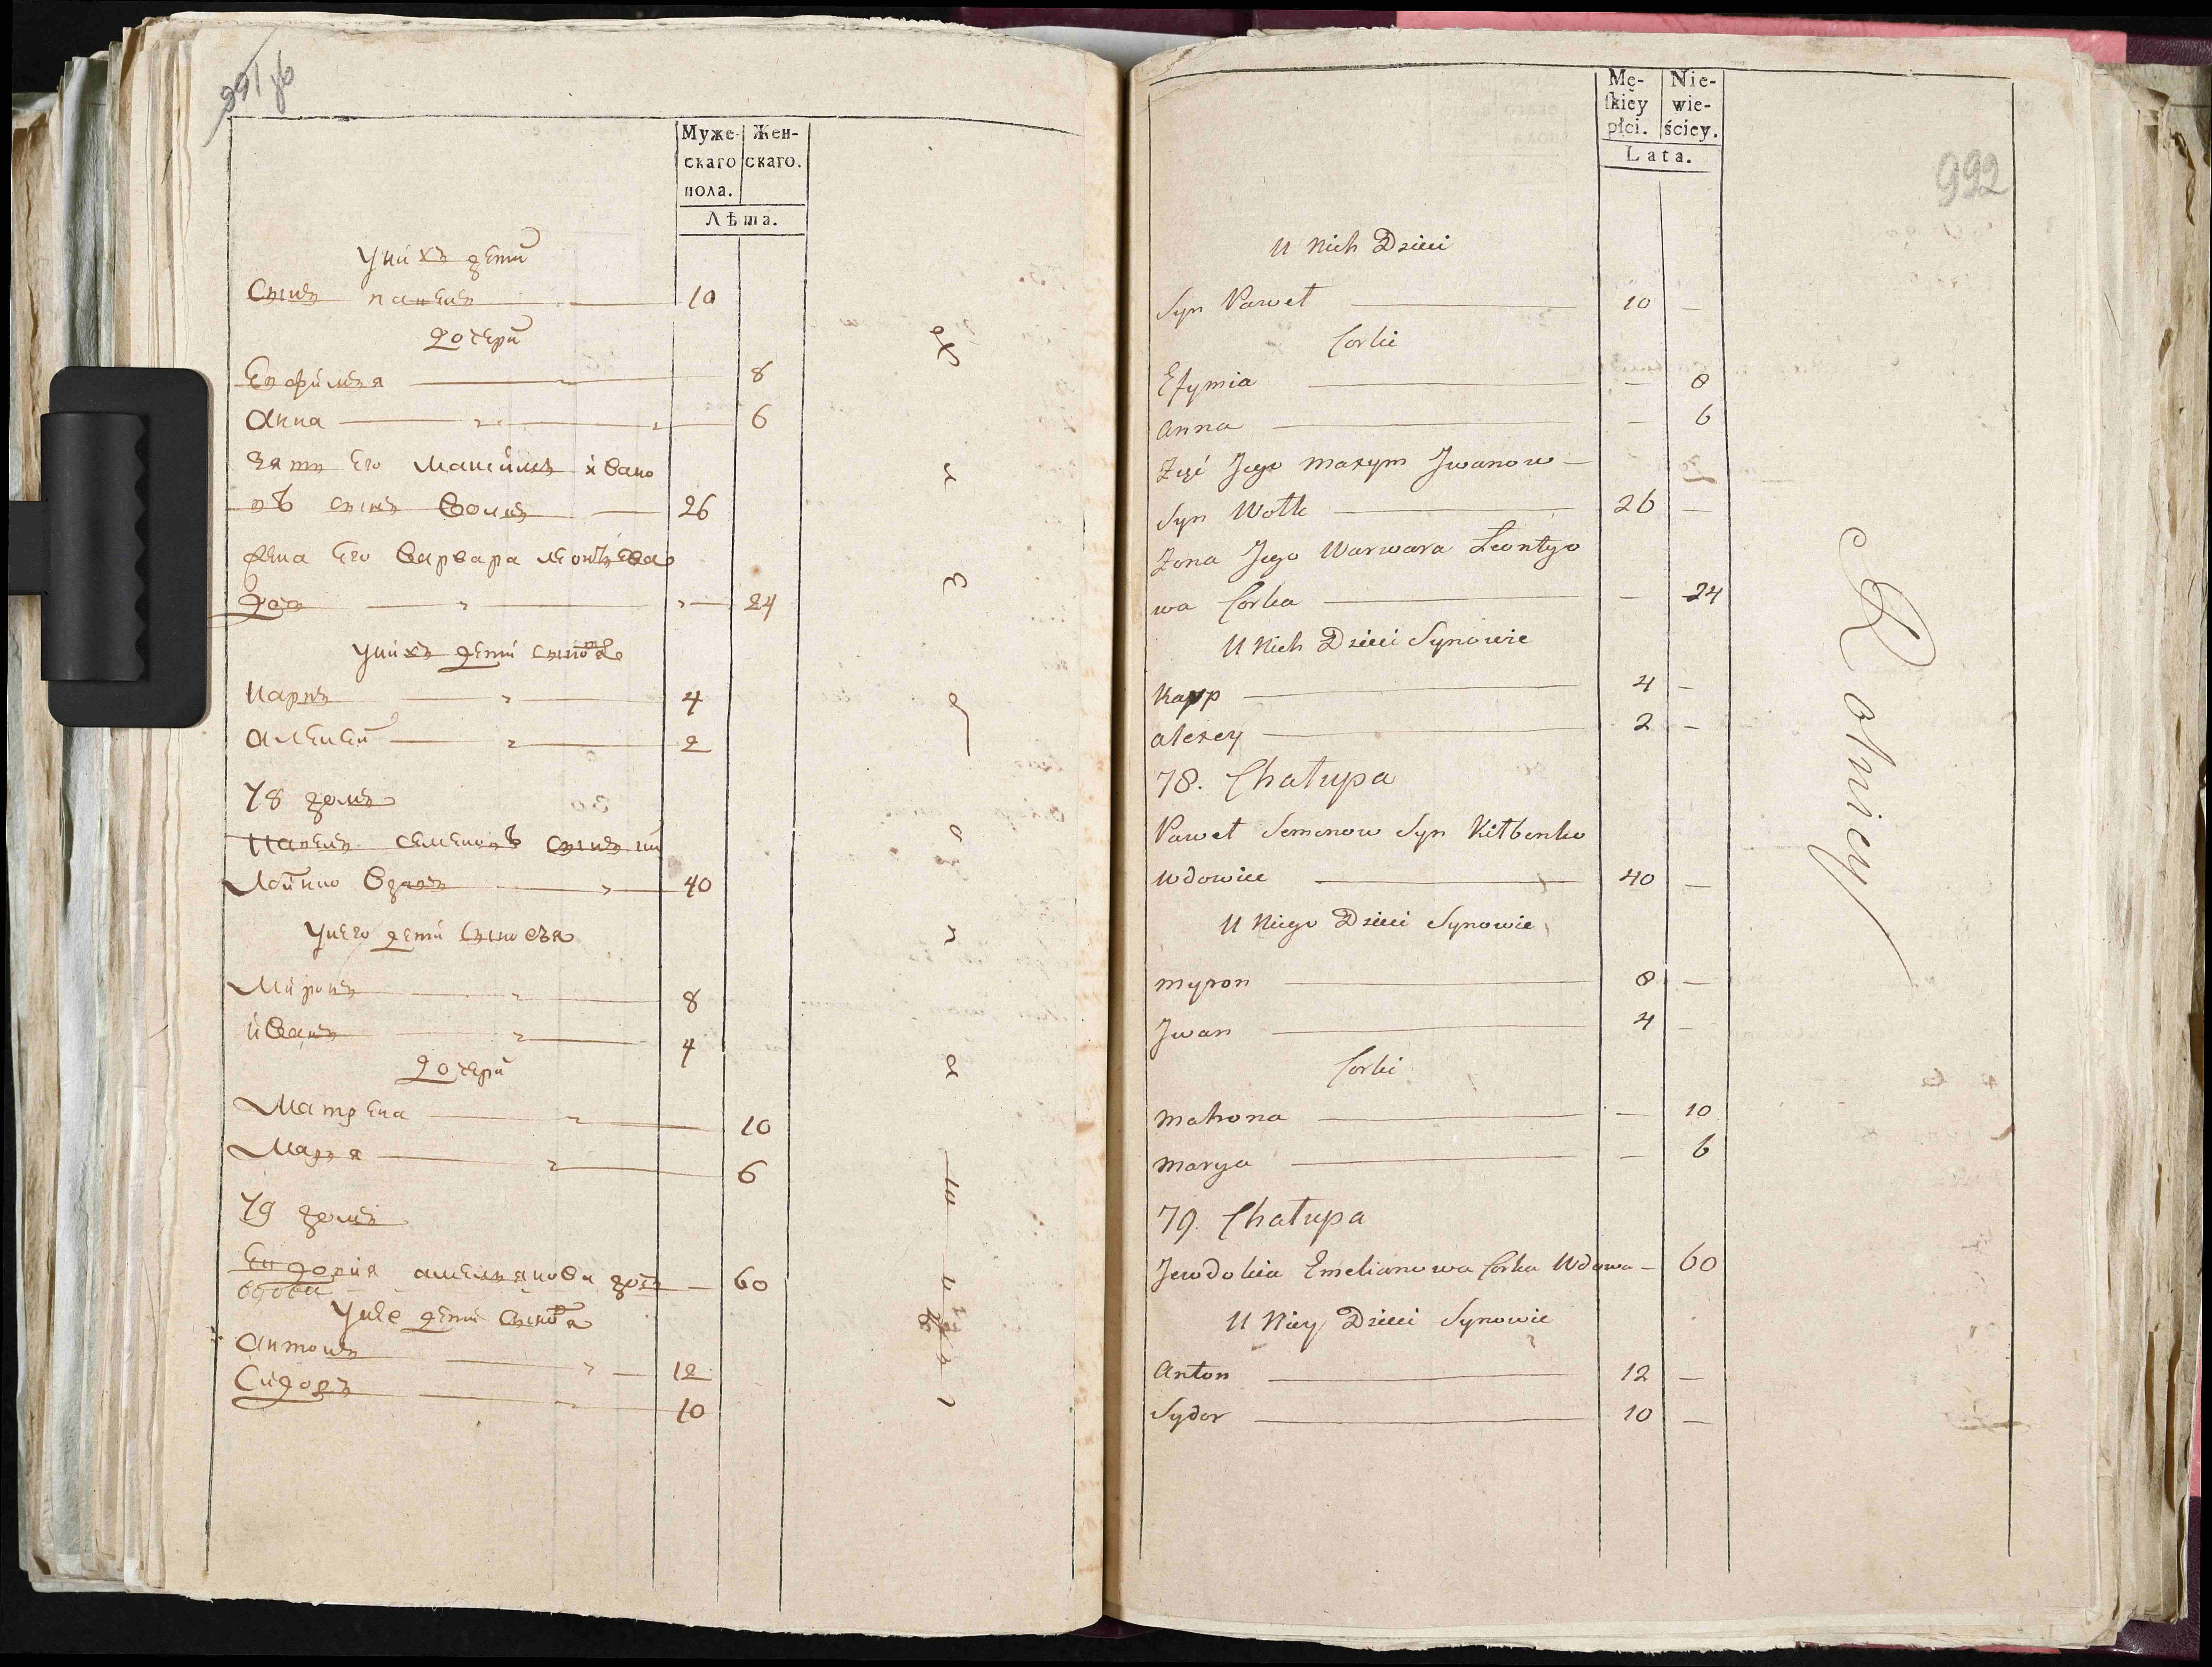 991 об
Муже- Жен-
скаго скаго.
пола.
Лѣта.
У них дети
Сынъ павелъ 10
дочери
Евфимья 8
Анна 6
Зять Его Максимъ ивано
въ сынъ Волкъ 26
жена Его варвара леонтьева
доч 24
У нихъ дети сыновья
Карпъ 4
Алексей 2
78 домъ
Павелъ семеновъ сынъ ки
40
У него дети сыновья
Миронъ 8
иванъ 4
дочери
Матрена 10
Марья 6
79 домъ
Евдокия амельянова доч 60
вдова
У нее дети сыновья
Антонъ 12
Сидоръ 10
Mę- Nie-
ſkiey wie-
płci. ściey.
Lata.
992
U Nich Dzieci
Syn Paweł 10 —
Corki
Efymia — 8
Anna — 6
Zięć Jego Maxym Jwanow
Syn Wołk 26 —
Zona Jego Warwara Leontyo
wa Corka — 24
U Nich Dzieci Synowie
Karp 4 —
Alexey 2 —
78. Chałupa
Paweł Semenow Syn Kiłbenko
Wdowiec 40 —
U Niego Dzieci Synowie
Myron 8 —
Jwan 4 —
Corki
Matrona — 10
Marya — 6
79. Chałupa
Jewdokia Emelianowa Corka Wdowa — 60
U Niey Dzieci Synowie
Anton 12 —
Sydor 10 —
Rolnicy